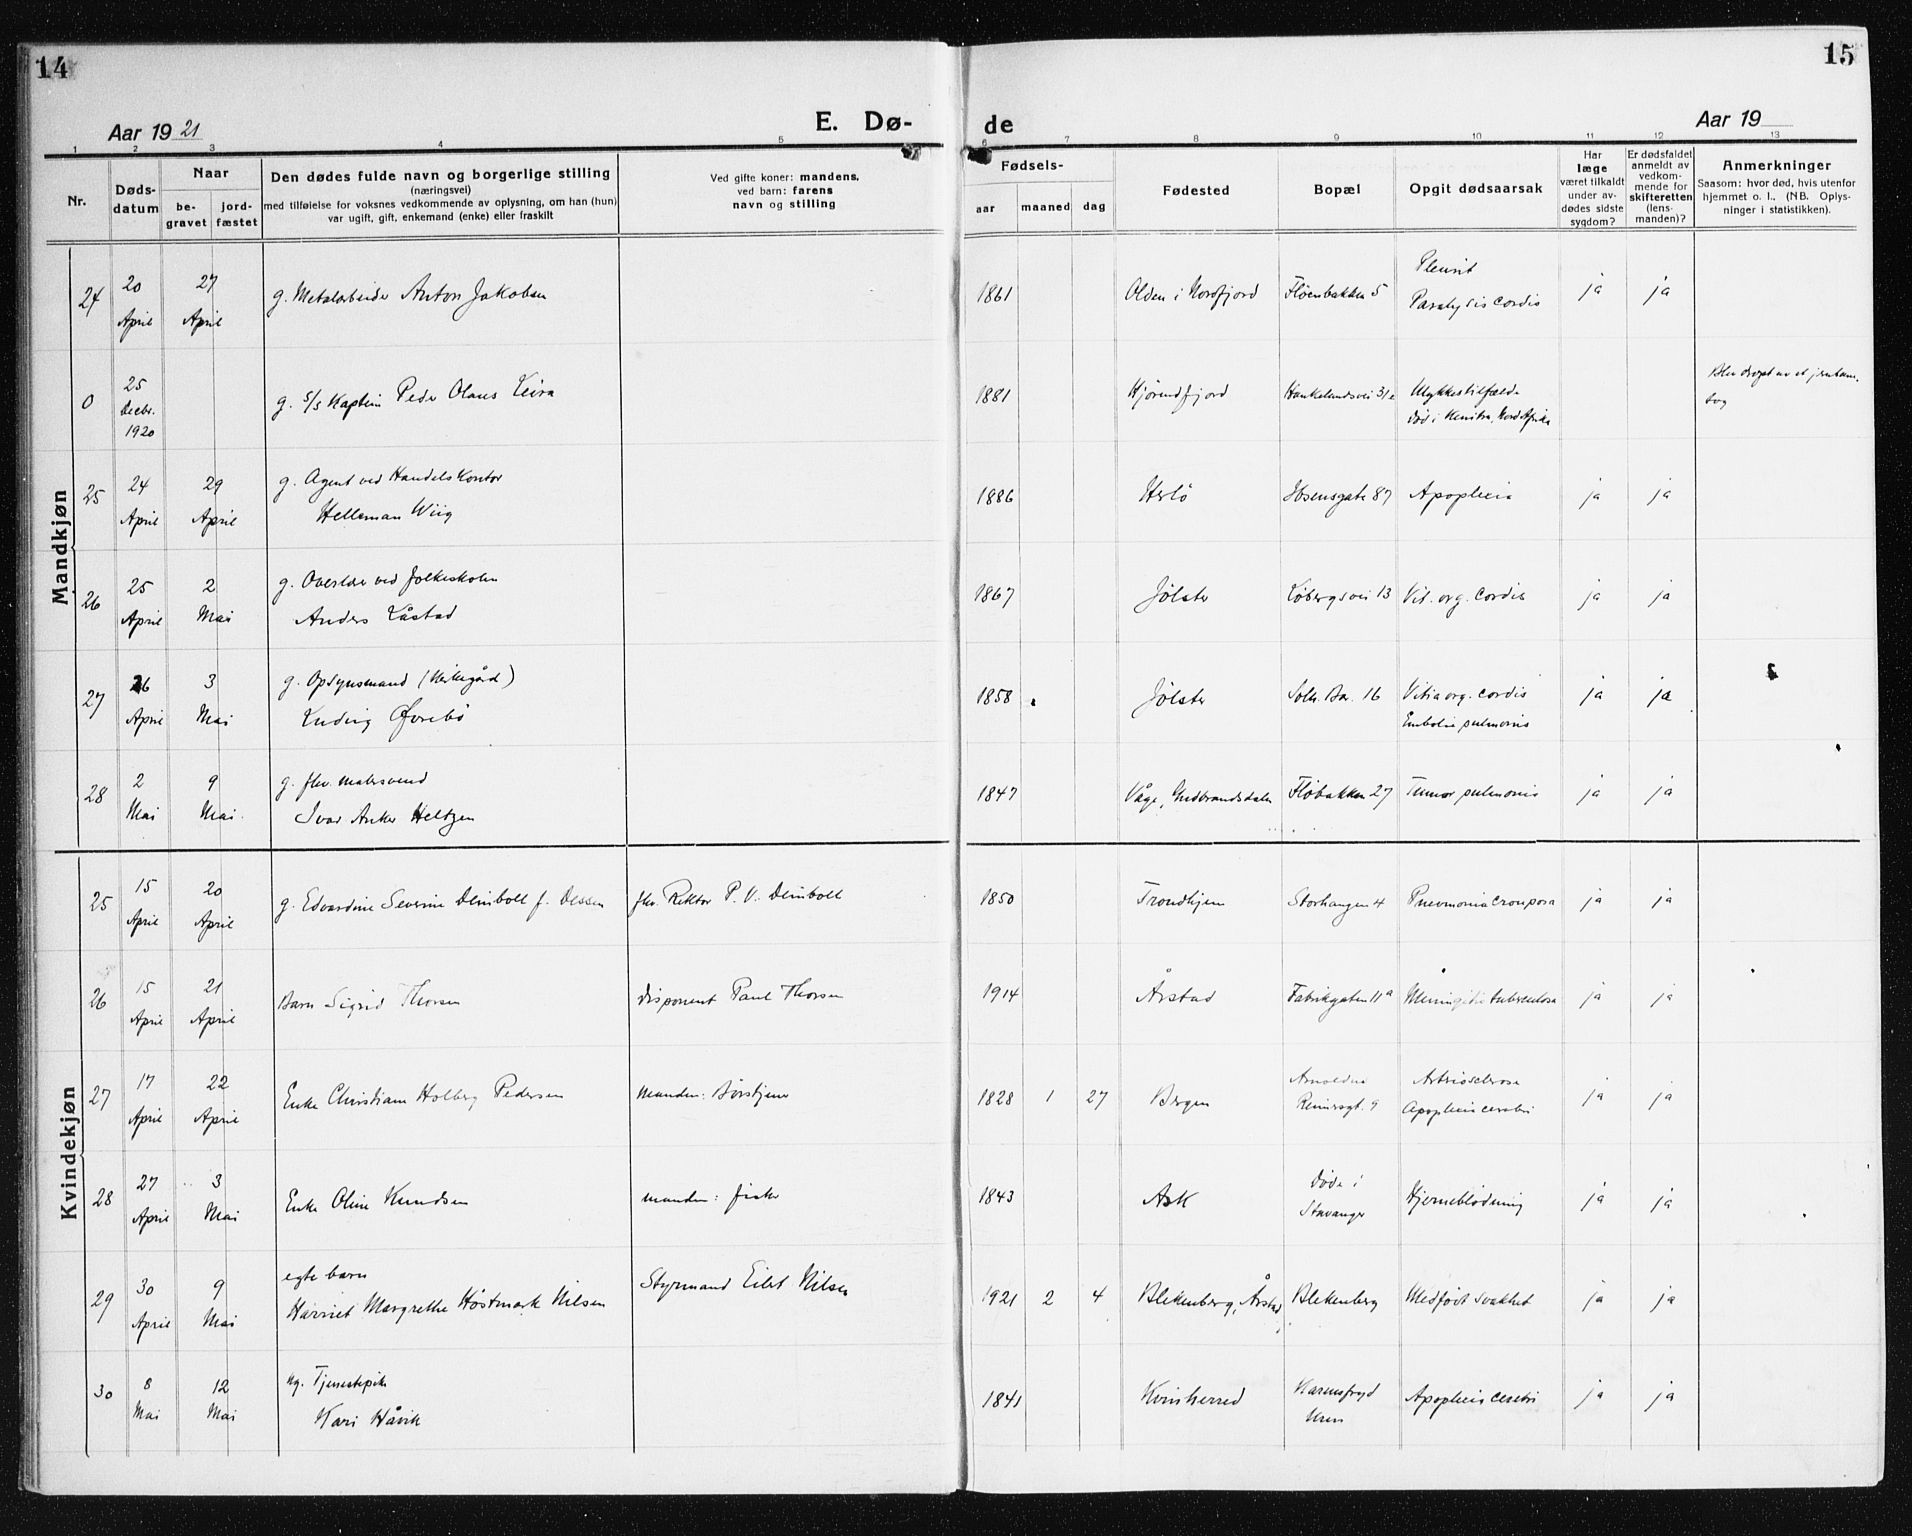 14
15
Aar 1921
E. Dø-
de
Aar 19
1 2 3 4 5 6 7 8 9 10 11 12 13
Nr.
Døds-
datum
Naar
be-
gravet
jord-
fæstet
Den dødes fulde navn og borgerlige stilling
(næringsvei)
med tilføielse for voksnes vedkommende av oplysning, om han (hun)
var ugift, gift, enkemand (enke) eller fraskilt
Ved gifte koner: mandens,
ved barn: farens
navn og stilling
Fødsels-
aar
maaned
dag
Fødested
Bopæl
Opgit dødsaarsak
Har
læge
været tilkaldt
under av-
dødes sidste
sygdom?
Er dødsfaldet
anmeldt av
vedkom-
mende for
skifteretten
(lens-
manden)?
Anmerkninger
Saasom: hvor død, hvis utenfor
hjemmet o. l., (NB. Oplys-
ninger i statistikken).
Mandkjøn
24 20 April 27 April g. Metalarbeider Anton Jakobsen 1861 Olden i Nordfjord Fløenbakken 5 Pleurit
Paralysis cordis ja ja
0 25 Decbr. 1920 g. S/S Kaptein Peder Olaus Leira 1881 Hjørundfjord Haukelandsvei 31 Ulykkestilfælde
død i Kenitra, Nord Afrika Blev dræpt av et jernbane-
tog
25 24 April 29 April g. Agent ved Handelskontor
Helleman Wiig 1886 Herlø Ibsensgate 87 Apoplexia ja ja
26 25 April 2 Mai g. Overlær ved Folkeskolen
Anders Låstad 1867 Jølster Løbergsvei 13 Vit. org. cordis ja ja
27 26 April 3 Mai g. Opsynsmand (Kirkegård)
Ludvig Øvrebö 1858 Jølster Solh. 16 Vitia org. cordis
Embolia pulmonis ja ja
28 2 Mai 9 Mai g. fhv. malersvend
Ivar Anker Heltzen 1847 Våge, Gudbrandsdalen Fløbakken 27 Tumor pulmonis ja ja
Kvindekjøn
25 15 April 20 April g. Edvardine Severine Deinboll f. Dessen fhv. Rektor P. V. Deinboll 1850 Trondhjem Storhaugen 4 Pneumonia crouposa ja ja
26 15 April 21 April Barn Sigrid Thorsen disponent Paul Thorsen 1914 Årstad Fabrikgaten 11a Meningitis tuberculosa ja ja
27 17 April 22 April Enke Christiane Holberg Pedersen manden: 1828 1 27 Bergen Arnoldus
Reimersgt. 9 Artriosclerose
Apoplexia cerebri ja ja
28 27 April 3 Mai Enke Oline Knudsen manden: fisker 1843 Ask døde i
Stavanger Hjerneblødning ja ja
29 30 April 9 Mai egte barn
Harriet Margrethe Høstmark Nilsen Styrmand Eilert Nilsen 1921 2 4 Blekenberg, Årstad Blekenberg Medfødt svakhet ja ja
30 8 Mai 12 Mai ug. Tjenestepike
Kari Håvik 1841 Kvinherred Karensfryd
Uren Apoplexia cerebri ja ja